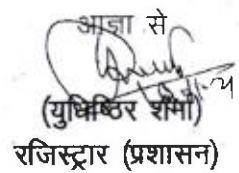 आज्ञा से
(युधिष्ठिर शर्मा)
रजिस्ट्रार (प्रशासन)